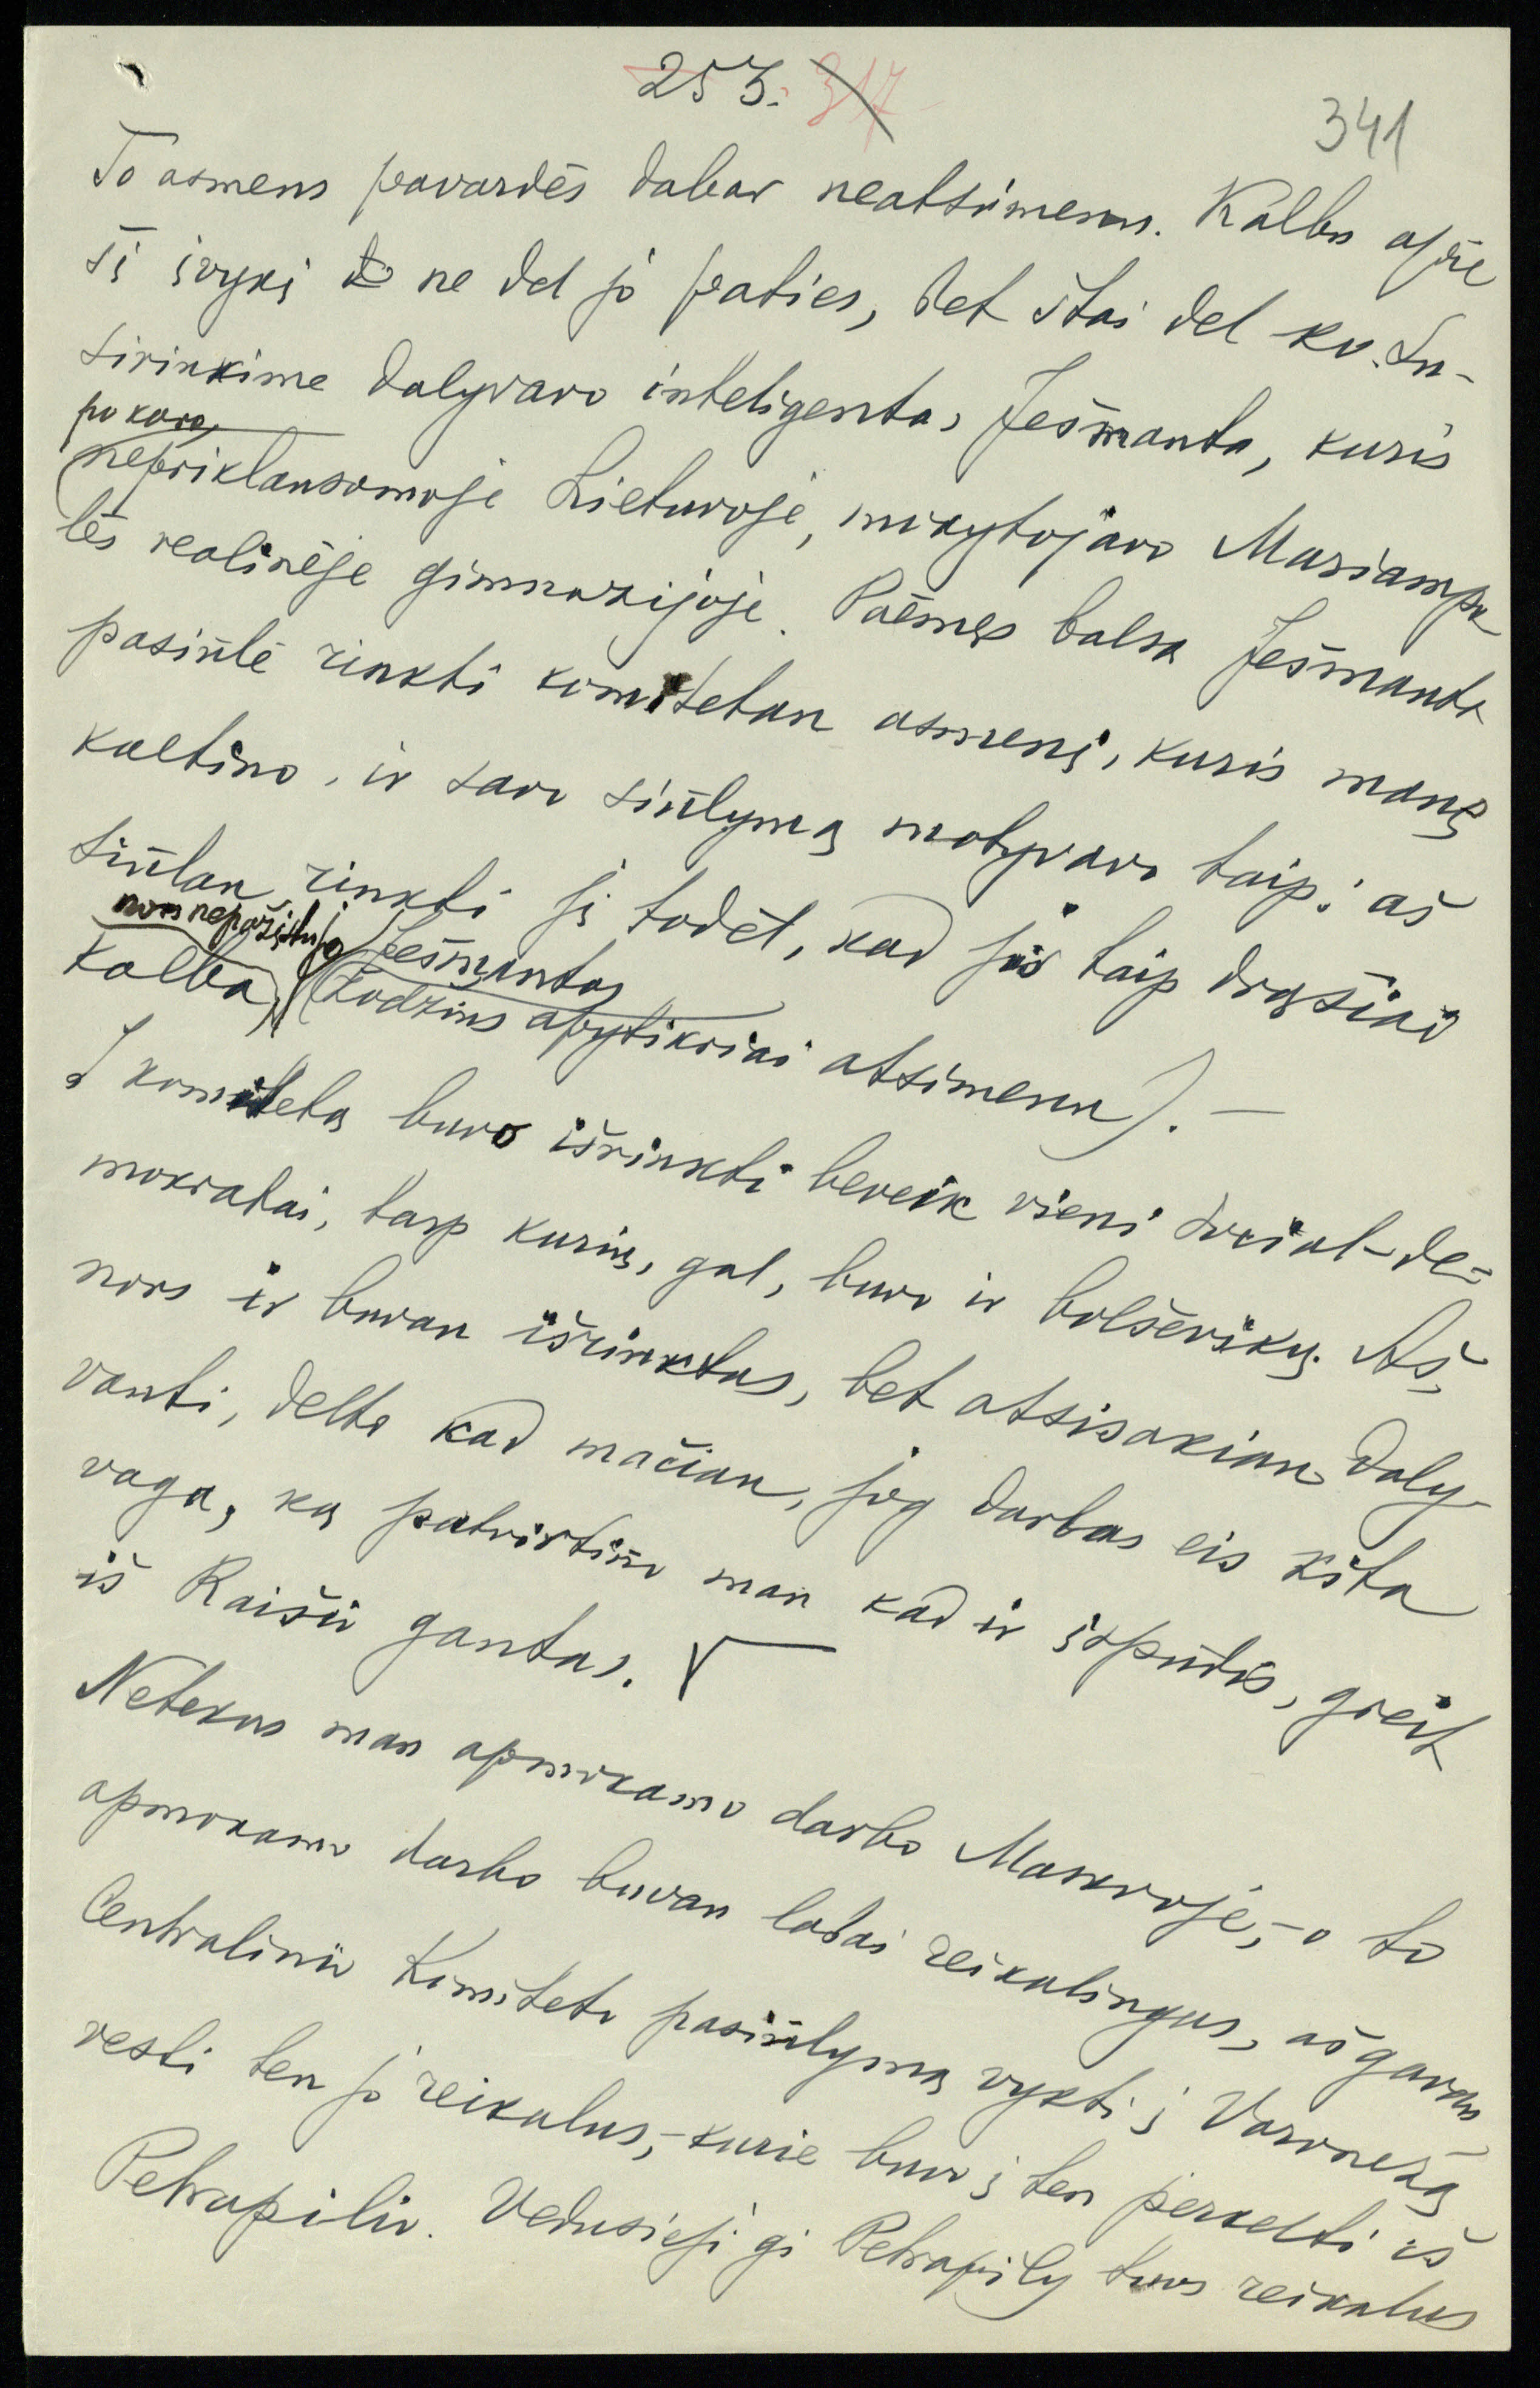 253. 317
341
To asmens pavardės dabar neatsimenu. Kalbu apie
šį įvykį ne dėl jo paties, bet štai dėl ko. Su-
sirinkime dalyvavo inteligentas Ješmanta, kuris
po karo,
nepriklausomoje Lietuvoje, mokytojavo Mariampo-
lės realinėje gimnazijoje. Paėmęs balsą Ješmanta
pasiūlė rinkti komitetan asmenį, kuris mane
kaltino, ir savo siūlymą motyvavo taip: aš
siūlau rinkti jį todėl, kad jis taip drąsiai
nors nepažįstu jo
Ješmantos
kalba, (žodžius apytikriai atsimenu). —
Į komitetą buvo išrinkti beveik vieni social-de-
mokratai, tarp kurių, gal, buvo ir bolševikų. Aš,
nors ir buvau išrinktas, bet atsisakiau daly-
vauti, delto kad mačiau, jog darbas eis kita
vaga, ką patvirtino man kad ir įspūdis, greit
iš Raišio gautas.
Netekus man apmokamo darbo Maskvoje, - o to
apmokamo darbo buvau labai reikalingas, aš gavau
Centralinio Komiteto pasiūlymą vykti į Voronežą
vesti ten jo reikalus, - kurie buvo į ten perkelti iš
Petrapilio. Vedusieji gi Petrapily tuos reikalus